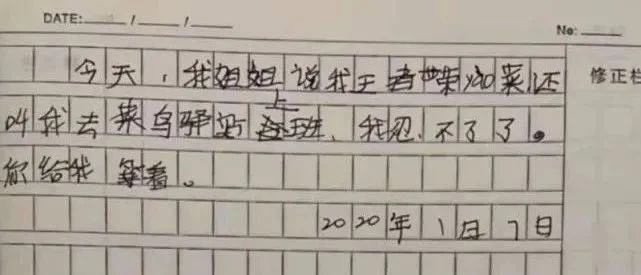 DATE: / /
No:
今天，我姐姐说我王者荣耀菜还
修正栏
叫我去菜鸟驿站上班，我忍不了了。
你给我等着。
2020年1月7日